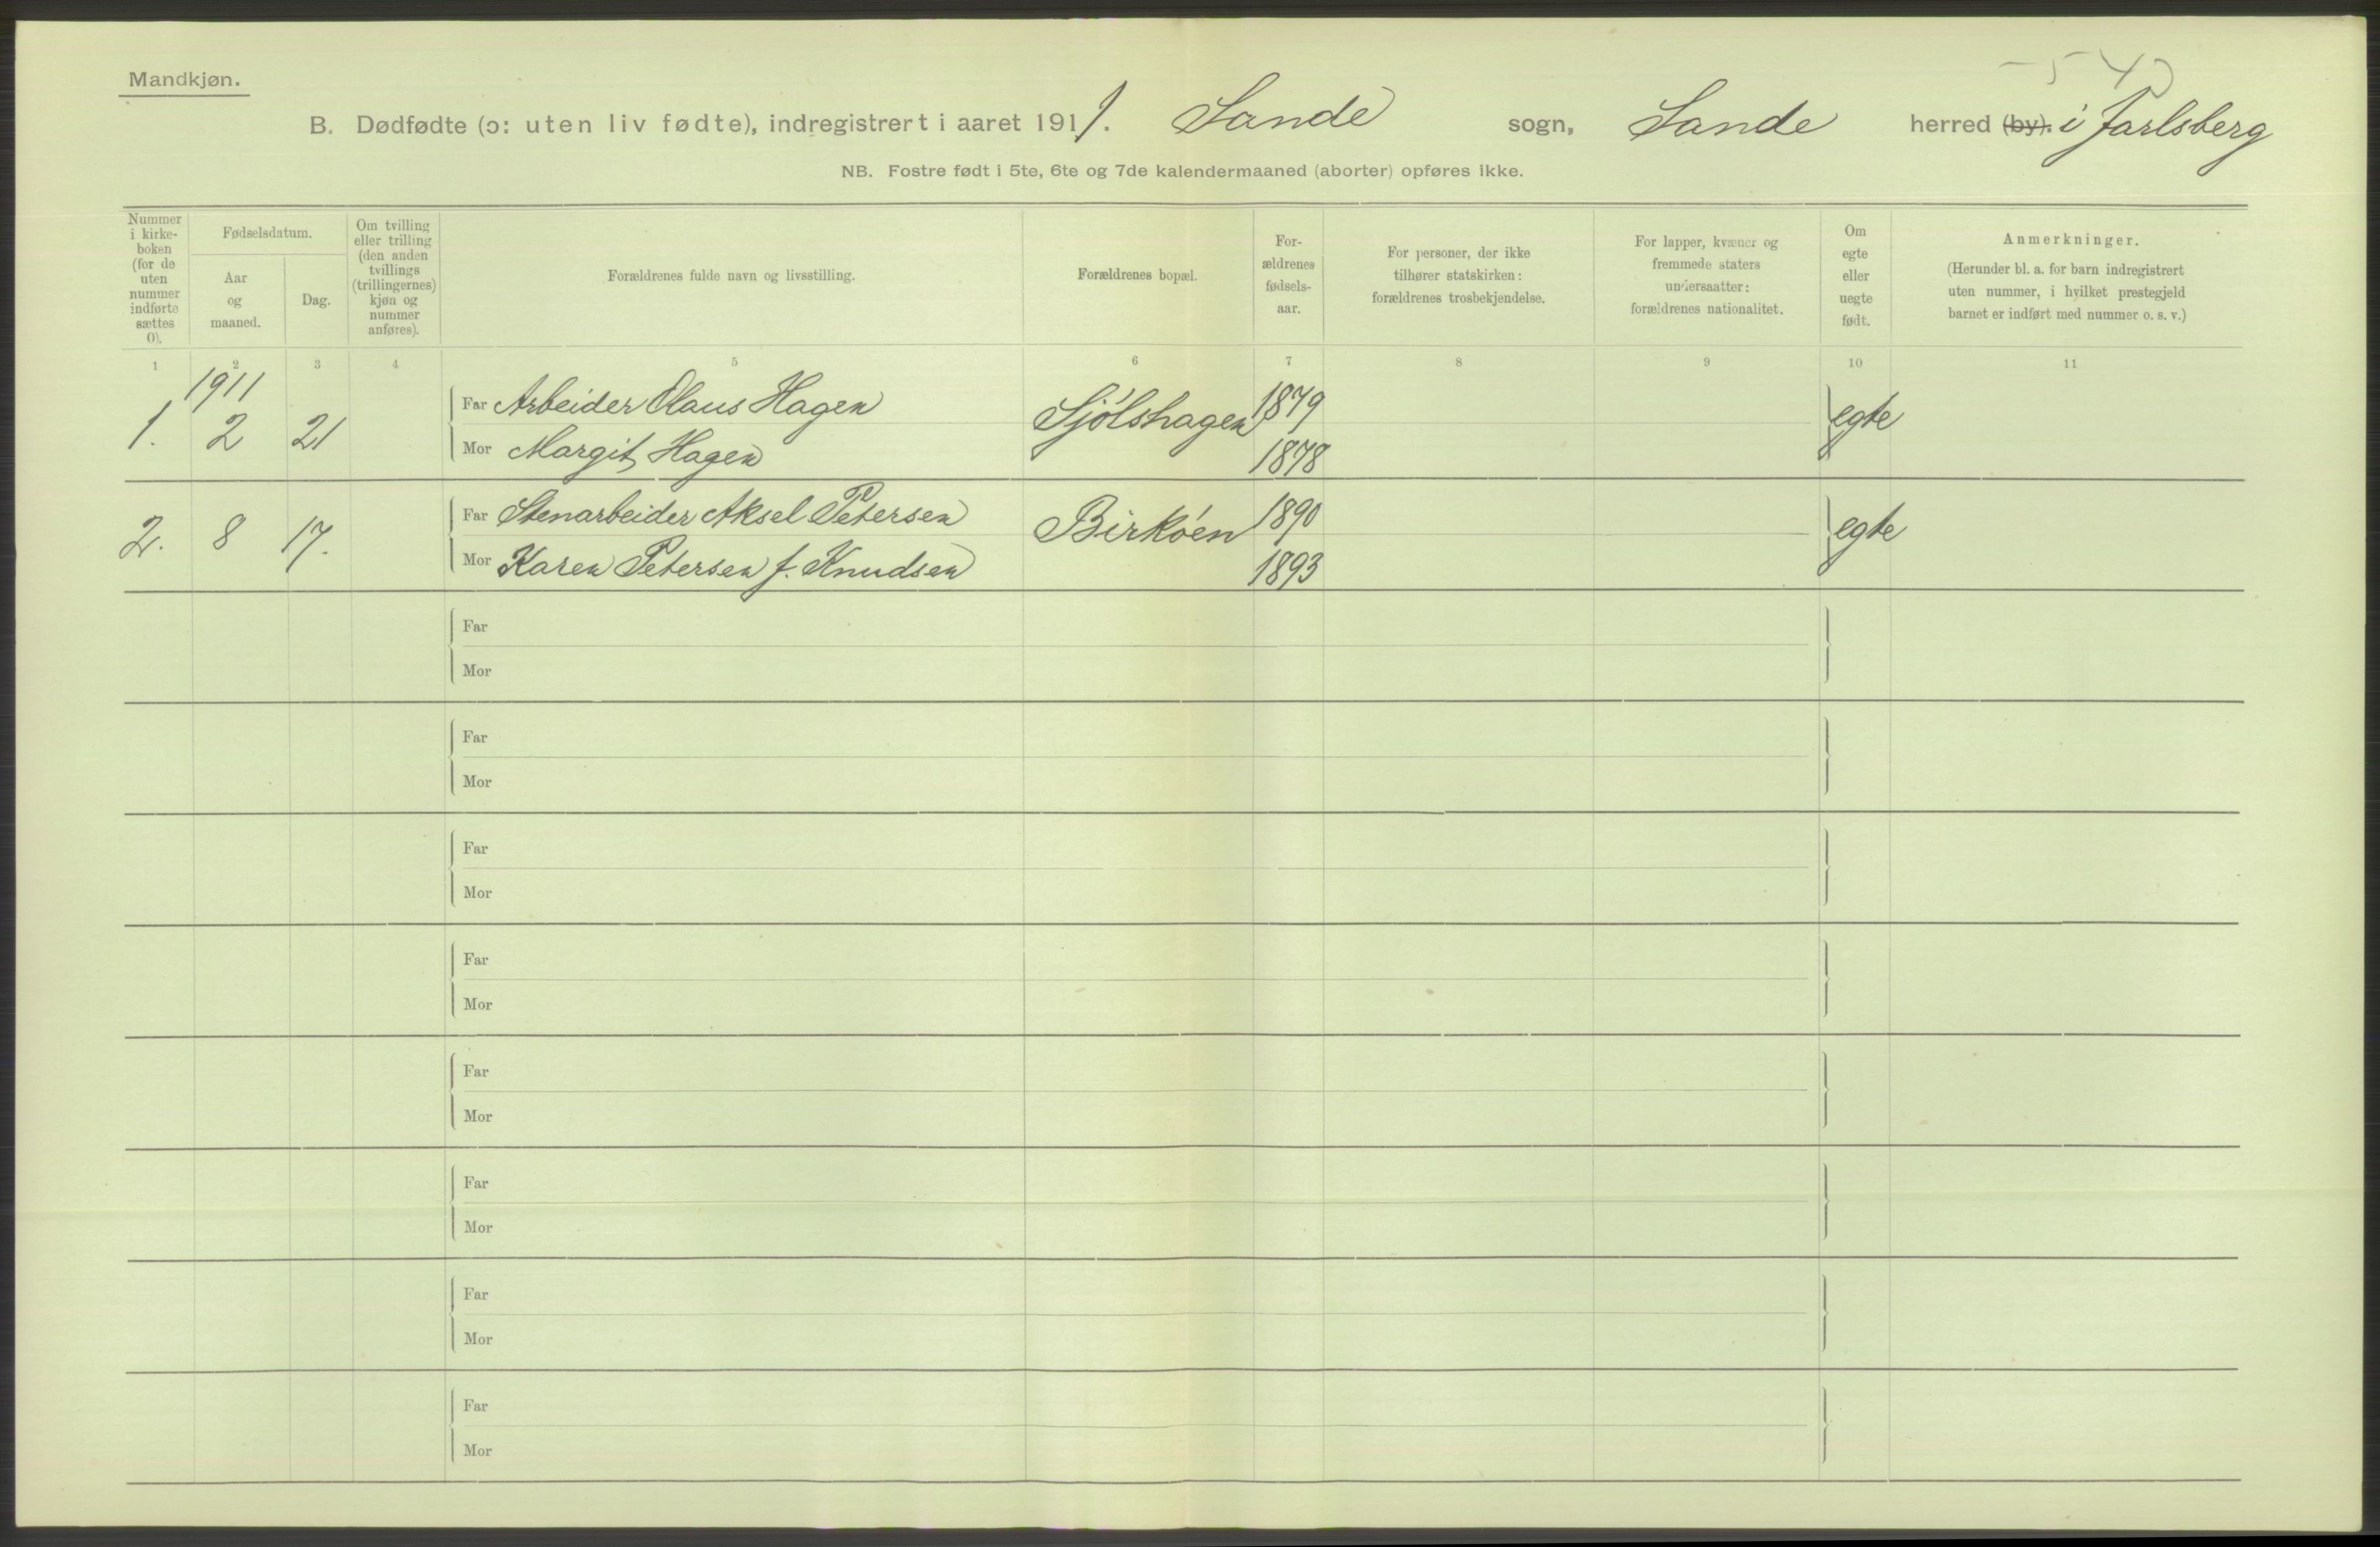 54
Mandkjøn.
B. Dødfødte (ɔ: uten liv fødte), indregistrert i aaret 1911. Sande sogn, Sande herred (by). i Jarlsberg
NB. Fostre født i 5te, 6te og 7de kalendermaaned (aborter) opføres ikke.
Nummer
i kirke-
boken
(for de
uten
nummer
indførte
sættes
0).
Fødselsdatum.
Aar
og
maaned.
Dag.
Om tvilling
eller trilling
(den anden
tvillings
(trillingernes)
kjøn og
nummer
anføres).
Forældrenes fulde navn og livsstilling.
Forældrenes bopæl.
For-
ældrenes
fødsels-
aar.
For personer, der ikke
tilhører statskirken:
forældrenes trosbekjendelse.
For lapper, kvæner og
fremmede staters
undersaatter:
forældrenes nationalitet.
Om
egte
eller
uegte
født.
Anmerkninger.
(Herunder bl. a. for barn indregistrert
uten nummer, i hvilket prestegjeld
barnet er indført med nummer o. s. v.)
1 2 3 4 5 6 7 8 9 10 11
1911
1. 2 21 Far Arbeider Olaus Hagen Sjólshagen 1879 egte
Mor Margit Hagen 1878
2. 8 17. Far Stenarbeider Aksel Petersen Birkóen 1890 egte
Mor Karen Petersen f. Knudsen 1893
Far
Mor
Far
Mor
Far
Mor
Far
Mor
Far
Mor
Far
Mor
Far
Mor
Far
Mor